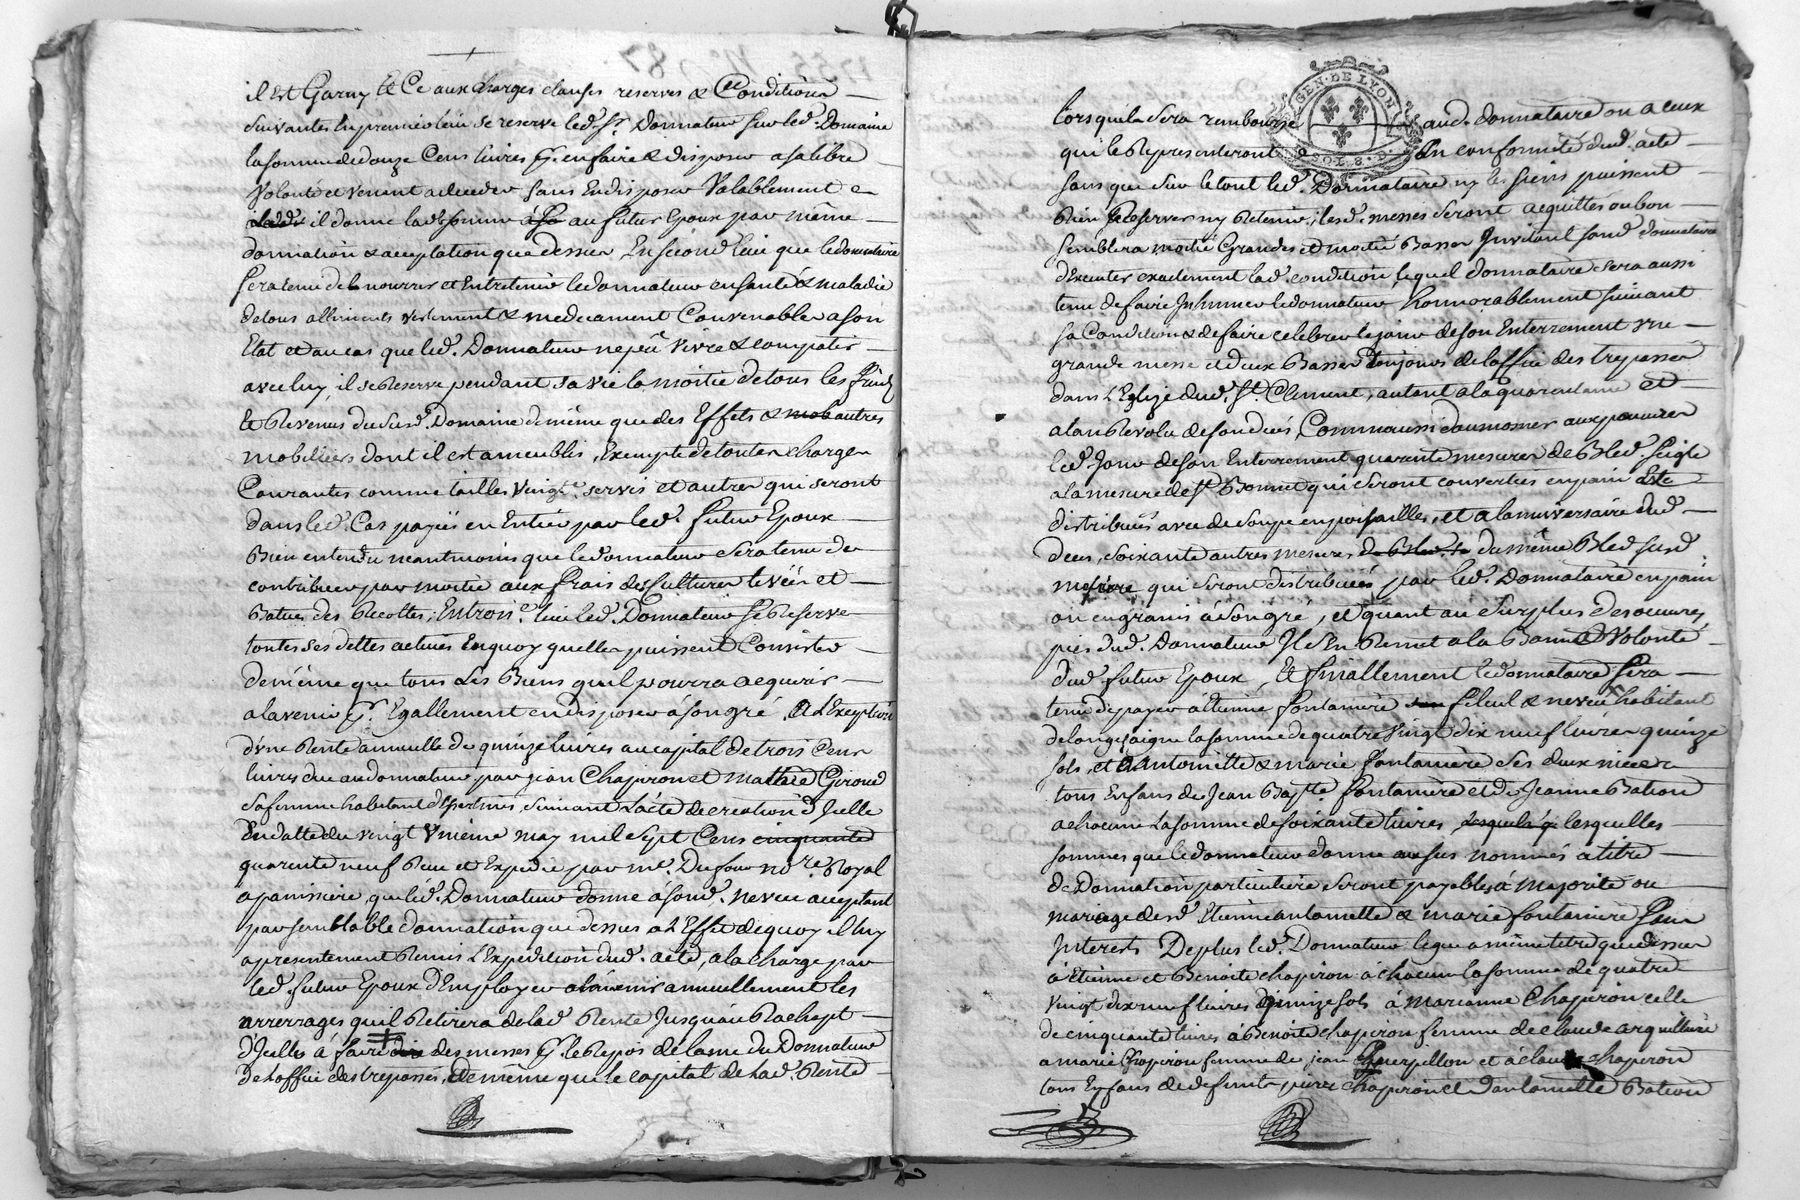 il Est Garny Et Ce aux Charges clauses reserves & Conditions
Suivantes En premier lieu se reserve led. Sr. Donnateur sur led. Domaine
la somme de douze Cens livres pr. en faire & disposer a sa libre
Volonté et venant a deceder sans En disposer Valablement
il donne lad. somme au futur Epoux par même
donnation & acceptation que dessus En second lieu que le donnataire
sera tenu de nourrir et Entretenir le donnateur en santé & maladie
de tous alliments vestement & medicament Convenable a son
Etat et au cas que led. Donnateur ne peu vivre & compatir
avec luy, il se Reserve pendant sa vie la moitié de tous les fruits
& Revenus du susd. Domaine de même que des Effets & mob autres
mobiliers dont il est ameublis, Exempte de toutes charges
Courantes comme tailles Vingte. servis et autres qui seront
dans led. Cas payés en Entier par led. futur Epoux
Bien entendu neantmoins que le donnateur sera tenu de
contribuer par moitié aux frais des Cultures levées et
Batues des Recoltes, En troise. lieu led. Donnateur se Reserve
toutes ses dettes actives En quoy quelles puissent Consister
de même que tous Les Biens quil pourra acquerir
a lavenir pr. Egallement en disposer à son gré, a L'Exception
d'une Rente annuelle de quinze livres au capital de trois Cens
livres due au donnateur par jean Chapiron et mathie Giroud
sa femme habitant d'Epertines, suivant L'acte de creation d'Icelle
En datte du vingt Unieme may mil sept Cens cinquante
quarente neuf Reçu et Expedié par me. Dufour nore. Royal
a panissiere, que led. Donnateur donne à sond. neveu acceptant
par semblable donnation que dessus a L'Effet de quoy il luy
a presentement Remis L'Expedition dud. acte, a la charge par
led. futur Epoux d'Employer a lavenir annuellement les
arrerages quil Retirera de lad. Rente Jusqu'au Rachept
d'Icelle à faire dire des messes pr. le Repos de lame du Donnateur
de Loffice des trepassés, & de même que le capital de lad. Rente
GEN. DE LYON
SOLS
Lors quil sera rembourse aud. donnataire ou a ceux
qui le Representeront En conformité dud. acte
sans que sur le tout led. Donnataire ny les siens puissent
Rien Reserver ny Retenir, lesd. messes seront acquittés ou bon
semblera moitié Grandes et moitié Basses Invitant sond. donnataire
d'Executer exactement lad. condition, lequel donnataire sera aussi
tenu de faire Inhumer le donnateur honnorablement suivant
sa Condition & de faire celebrer le jour de son Enterrement une
grande messe et deux Basses toujours de loffice des trepassés
dans L'Eglize dud. St. Clement, autant a la quarentaine et
a lan Revolu de son dées, Comme aussi daumosner aux pauvres
led. Jour de son Enterrement quarente mesures de Bled Seigle
a la mesure de St. Bonnet qui seront converties en pain & Et
distribués avec de soupe en poisailles, et a lanniversaire dud.
dees, soixante autres mesures de Bled de du même Bled susd.
mesure qui seront distribuées par led. Donnataire en pain
ou en grains à son gré, et quant au surplus des oeuvres
pies dud. Donnateur Il s'En Remet a la Bonne Volonté
dud. futur Epoux, Et finallement le donnataire sera
tenu de payer à Etienne fontaniere son filleul & neveu habitant
de longesaigne la somme de quatre vingt dix neuf livres quinze
sols, et à antoinette & marie fontaniere ses deux nieces
tous Enfans de Jean Bapte. fontaniere et de Jeanne Bation
a chacune La somme de soixante livres, lesquels q lesquelles
sommes que le donnateur donne aux sus nommés a titre
de Donnation particuliere seront payables à majorité ou
mariage desd. Etienne antoinette & marie fontaniere Sans
Interests De plus led. Donnateur legue a même titre que dessus
à Etienne et Benoite chapiron à chacun la somme de quatre
vingt dix neuf livres quinze sols à marianne Chapiron celle
de cinquante livres à Benoite chaperon femme de claude arquilliere
a marie Chaperon femme de jean Guerpillon et à claude chaperon
tous Enfans de defunts pierre chaperon et d'antoinette Bation